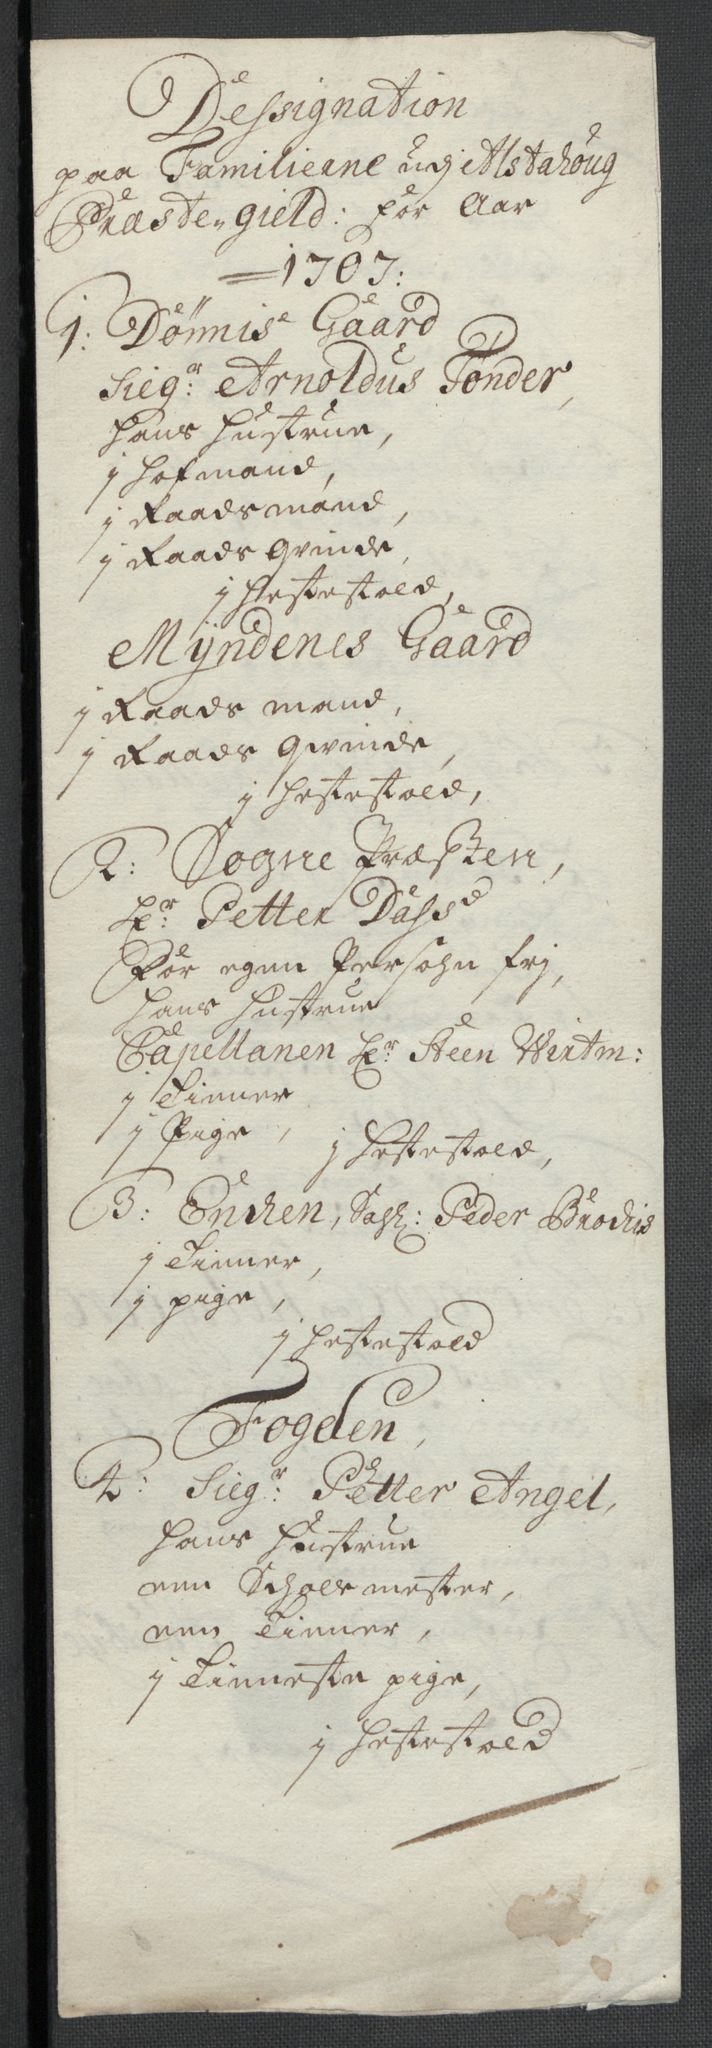 Dessignation
paa Familierne udj Alstahoug
Præste„gield: for Aar
1707:
1: Dønnis Gaard
Sigr: Arnoldus Tønder,
hans hustrue,
1 hofmand,
1 Raadsmand,
1 Raads Qvinde,
1 hestestald,
Myndenes Gaard
1 Raads mand,
1 Raads Qvinde,
1 hestestald,
2: Sogne Præsten,
Hr: Petter Dass
for egen Persohn frj,
hans hustrue
Capellanen Hr: Steen Wirtm:
1 Tienner
1 Pige, 1 hestestald,
3: Encken, Sahl: Peder Brochis
1 Tienner,
1 pige,
1 hestestald
Fogden,
4: Sigr: Petter Angel,
hans hustrue
een Scholemester,
een Tienner,
1 Tienneste pige,
1 hestestald